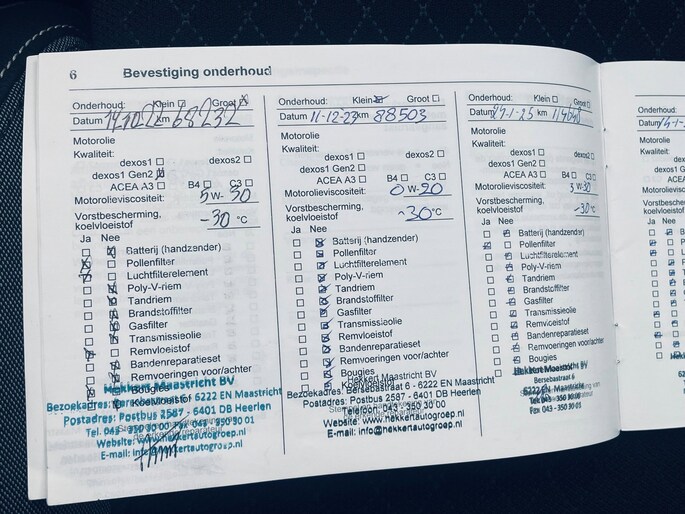 6 Bevestiging onderhoud
Onderhoud: Klein Groot
Datum 14.10.22 km 68232
Motorolie
Kwaliteit:
dexos1 dexos2
dexos1 Gen2
ACEA A3 B4 C3
Motorolieviscositeit: 5 W-30
Vorstbescherming,
koelvloeistof -30 °C
Ja Nee
Batterij (handzender)
Pollenfilter
Luchtfilterelement
Poly-V-riem
Tandriem
Brandstoffilter
Gasfilter
Transmissieolie
Remvloeistof
Bandenreparatieset
Remvoeringen voor/achter
Bougies
Koelvloeistof
Hekkert Maastricht BV
Bezoekadres: Bersebastraat 6 - 6222 EN Maastricht
Postadres: Postbus 2587 - 6401 DB Heerlen
Tel. 043 - 350 30 00 Fax 043 - 350 30 01
Website: www.hekkertautogroep.nl
E-mail: info@hekkertautogroep.nl
Onderhoud: Klein Groot
Datum 11-12-23 km 88503
Motorolie
Kwaliteit:
dexos1 dexos2
dexos1 Gen2
ACEA A3 B4 C3
Motorolieviscositeit: 0 W-20
Vorstbescherming,
koelvloeistof -30 °C
Ja Nee
Batterij (handzender)
Pollenfilter
Luchtfilterelement
Poly-V-riem
Tandriem
Brandstoffilter
Gasfilter
Transmissieolie
Remvloeistof
Bandenreparatieset
Remvoeringen voor/achter
Bougies
Koelvloeistof
Hekkert Maastricht BV
Bezoekadres: Bersebastraat 6 - 6222 EN Maastricht
Postadres: Postbus 2587 - 6401 DB Heerlen
Telefoon: 043 - 350 30 00
Website: www.hekkertautogroep.nl
E-mail: info@hekkertautogroep.nl
Onderhoud: Klein Groot
Datum km
Motorolie
Kwaliteit:
dexos1 dexos2
dexos1 Gen2
ACEA A3 B4 C3
Motorolieviscositeit: 5 W-30
Vorstbescherming,
koelvloeistof -30 °C
Ja Nee
Batterij (handzender)
Pollenfilter
Luchtfilterelement
Poly-V-riem
Tandriem
Brandstoffilter
Gasfilter
Transmissieolie
Remvloeistof
Bandenreparatieset
Remvoeringen voor/achter
Bougies
Hekkert Maastricht BV
Bersebastraat 6
6222 EN Maastricht
Tel 043 - 350 30 00
Fax 043 - 350 30 01
Onderhoud:
Datum
Motorolie
Kwaliteit:
Motorolieviscos
Vorstbescherm
koelvloeistof
Ja Nee